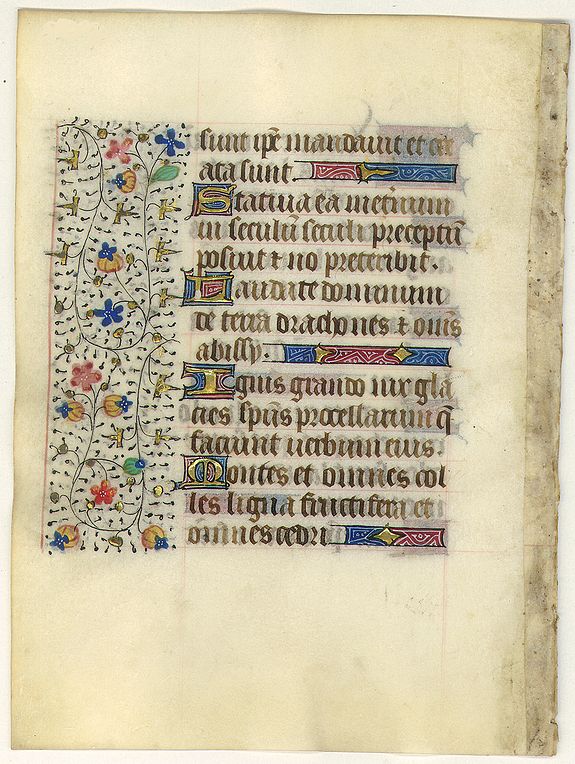 sunt ip̄e mandauit et cre
ata sunt.
Statuit ea in eternum
in seculū seculi preceptū
posuit ⁊ nō preteribit.
Laudate dominum
de terra drachones ⁊ om̄s
abissy.
Ignis grando nix gla
cies sp̄us procellarum q̄
faciunt uerbum eius.
Montes et omnes col
les ligna fructifera et
omnes cedri